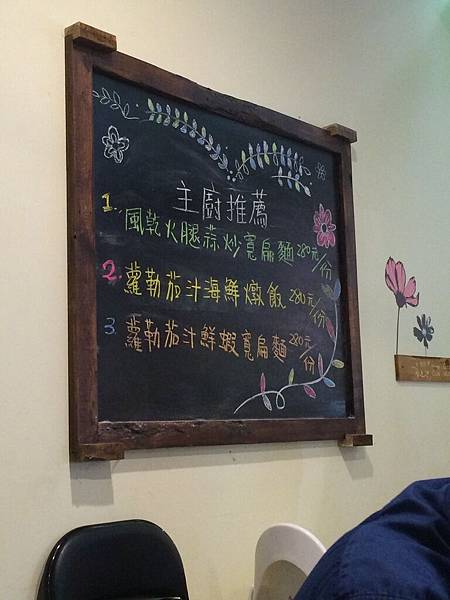 主廚推薦
1. 風乾火腿蒜炒寬扁麵 280元/份
2. 蘿勒茄汁海鮮燉飯 280元/份
3. 蘿勒茄汁鮮蝦寬扁麵 280元/份